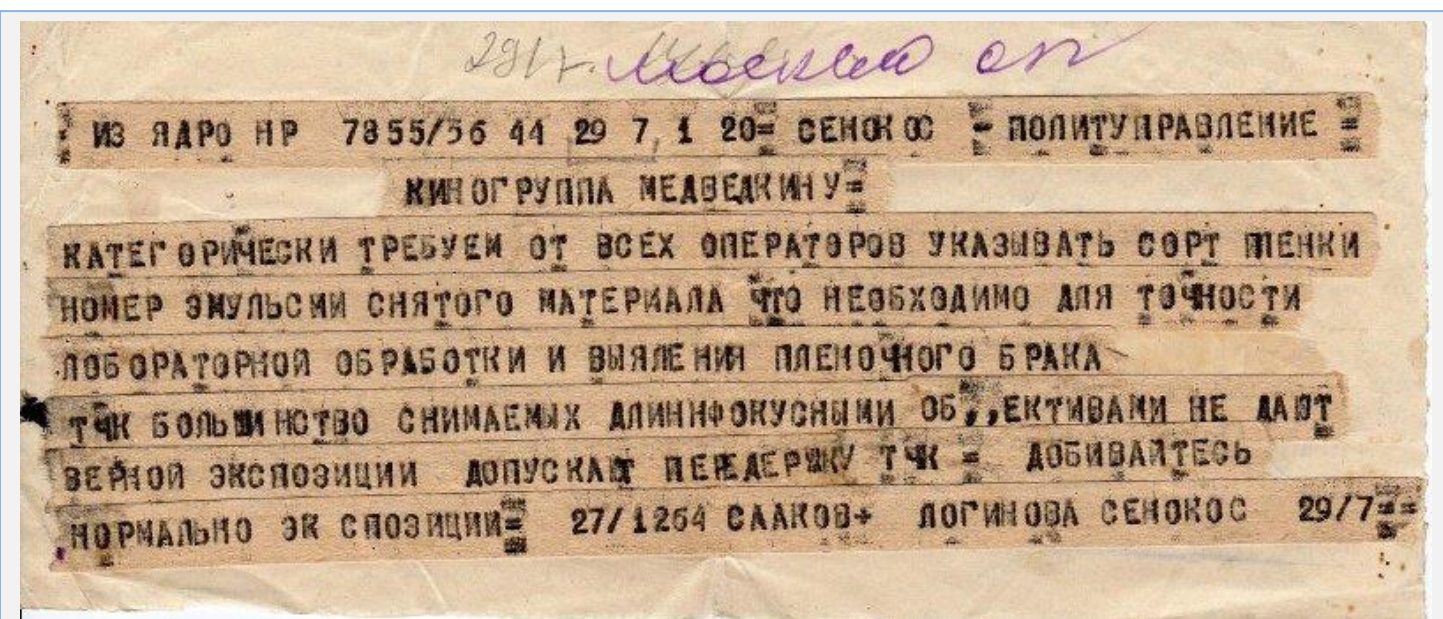 291г. Москвы
: ИЗ ЯДРО НР 7855/56 44 29 7, 1 20= СЕНОКОС = ПОЛИТУПРАВЛЕНИЕ =
КИНОГРУППА МЕДВЕДКИНУ=
КАТЕГОРИЧЕСКИ ТРЕБУЕМ ОТ ВСЕХ ОПЕРАТОРОВ УКАЗЫВАТЬ СОРТ ПЛЕНКИ
НОМЕР ЭМУЛЬСИИ СНЯТОГО МАТЕРИАЛА ЧТО НЕОБХОДИМО ДЛЯ ТОЧНОСТИ
ЛОБОРАТОРНОЙ ОБРАБОТКИ И ВЫЯЛЕНИЯ ПЛЕНОЧНОГО БРАКА
ТЧК БОЛЬШИНСТВО СНИМАЕМЫХ ДЛИННФОКУСНЫМИ ОБ,,ЕКТИВАМИ НЕ ДАЮТ
ВЕРНОЙ ЭКСПОЗИЦИИ ДОПУСКАЮТ ПЕРЕДЕРЖКУ ТЧК = ДОБИВАЙТЕСЬ
НОРМАЛЬНО ЭК СПОЗИЦИИ= 27/1264 СААКОВ+ ЛОГИНОВА СЕНОКОС 29/7==